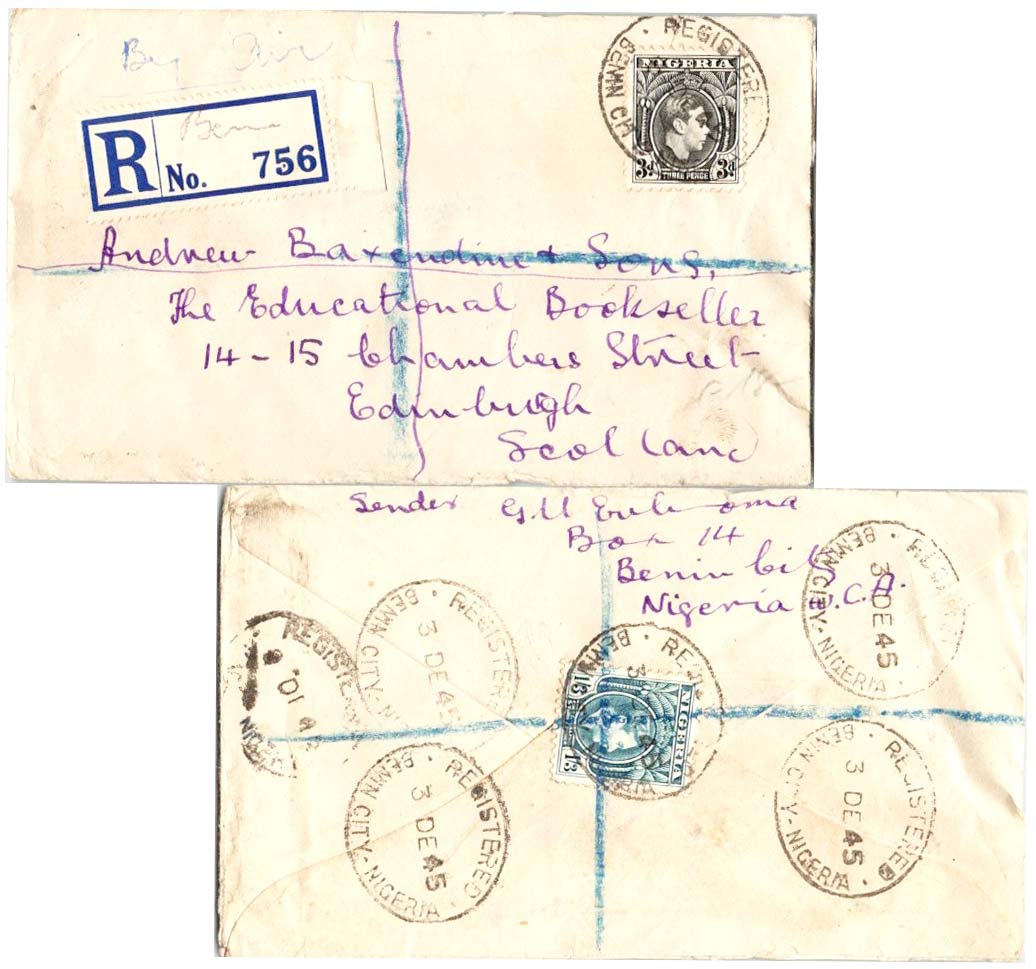 By Air
R No. 756
REGISTERE
BENIN CI
NIGERIA
3d THREE PENCE 3d
Andrew Baxendine & Sons,
The Educational Bookseller
14-15 Chambers Street
Edinburgh
Scotland
Sender G.U
Box 14
Benin City
Nigeria W.C.A.
REGISTERED
BENIN CITY · NIGERIA
3 DE 45
REGISTERED
BENIN CITY · NI
3 DE 4
REGISTE
REGI
BENIN
NIGERIA
1/3 1/3
REGISTERED
BENIN CITY · NIGERIA
3 DE 45
REGISTERED
BENIN CITY · NIGERIA
3 DE 45